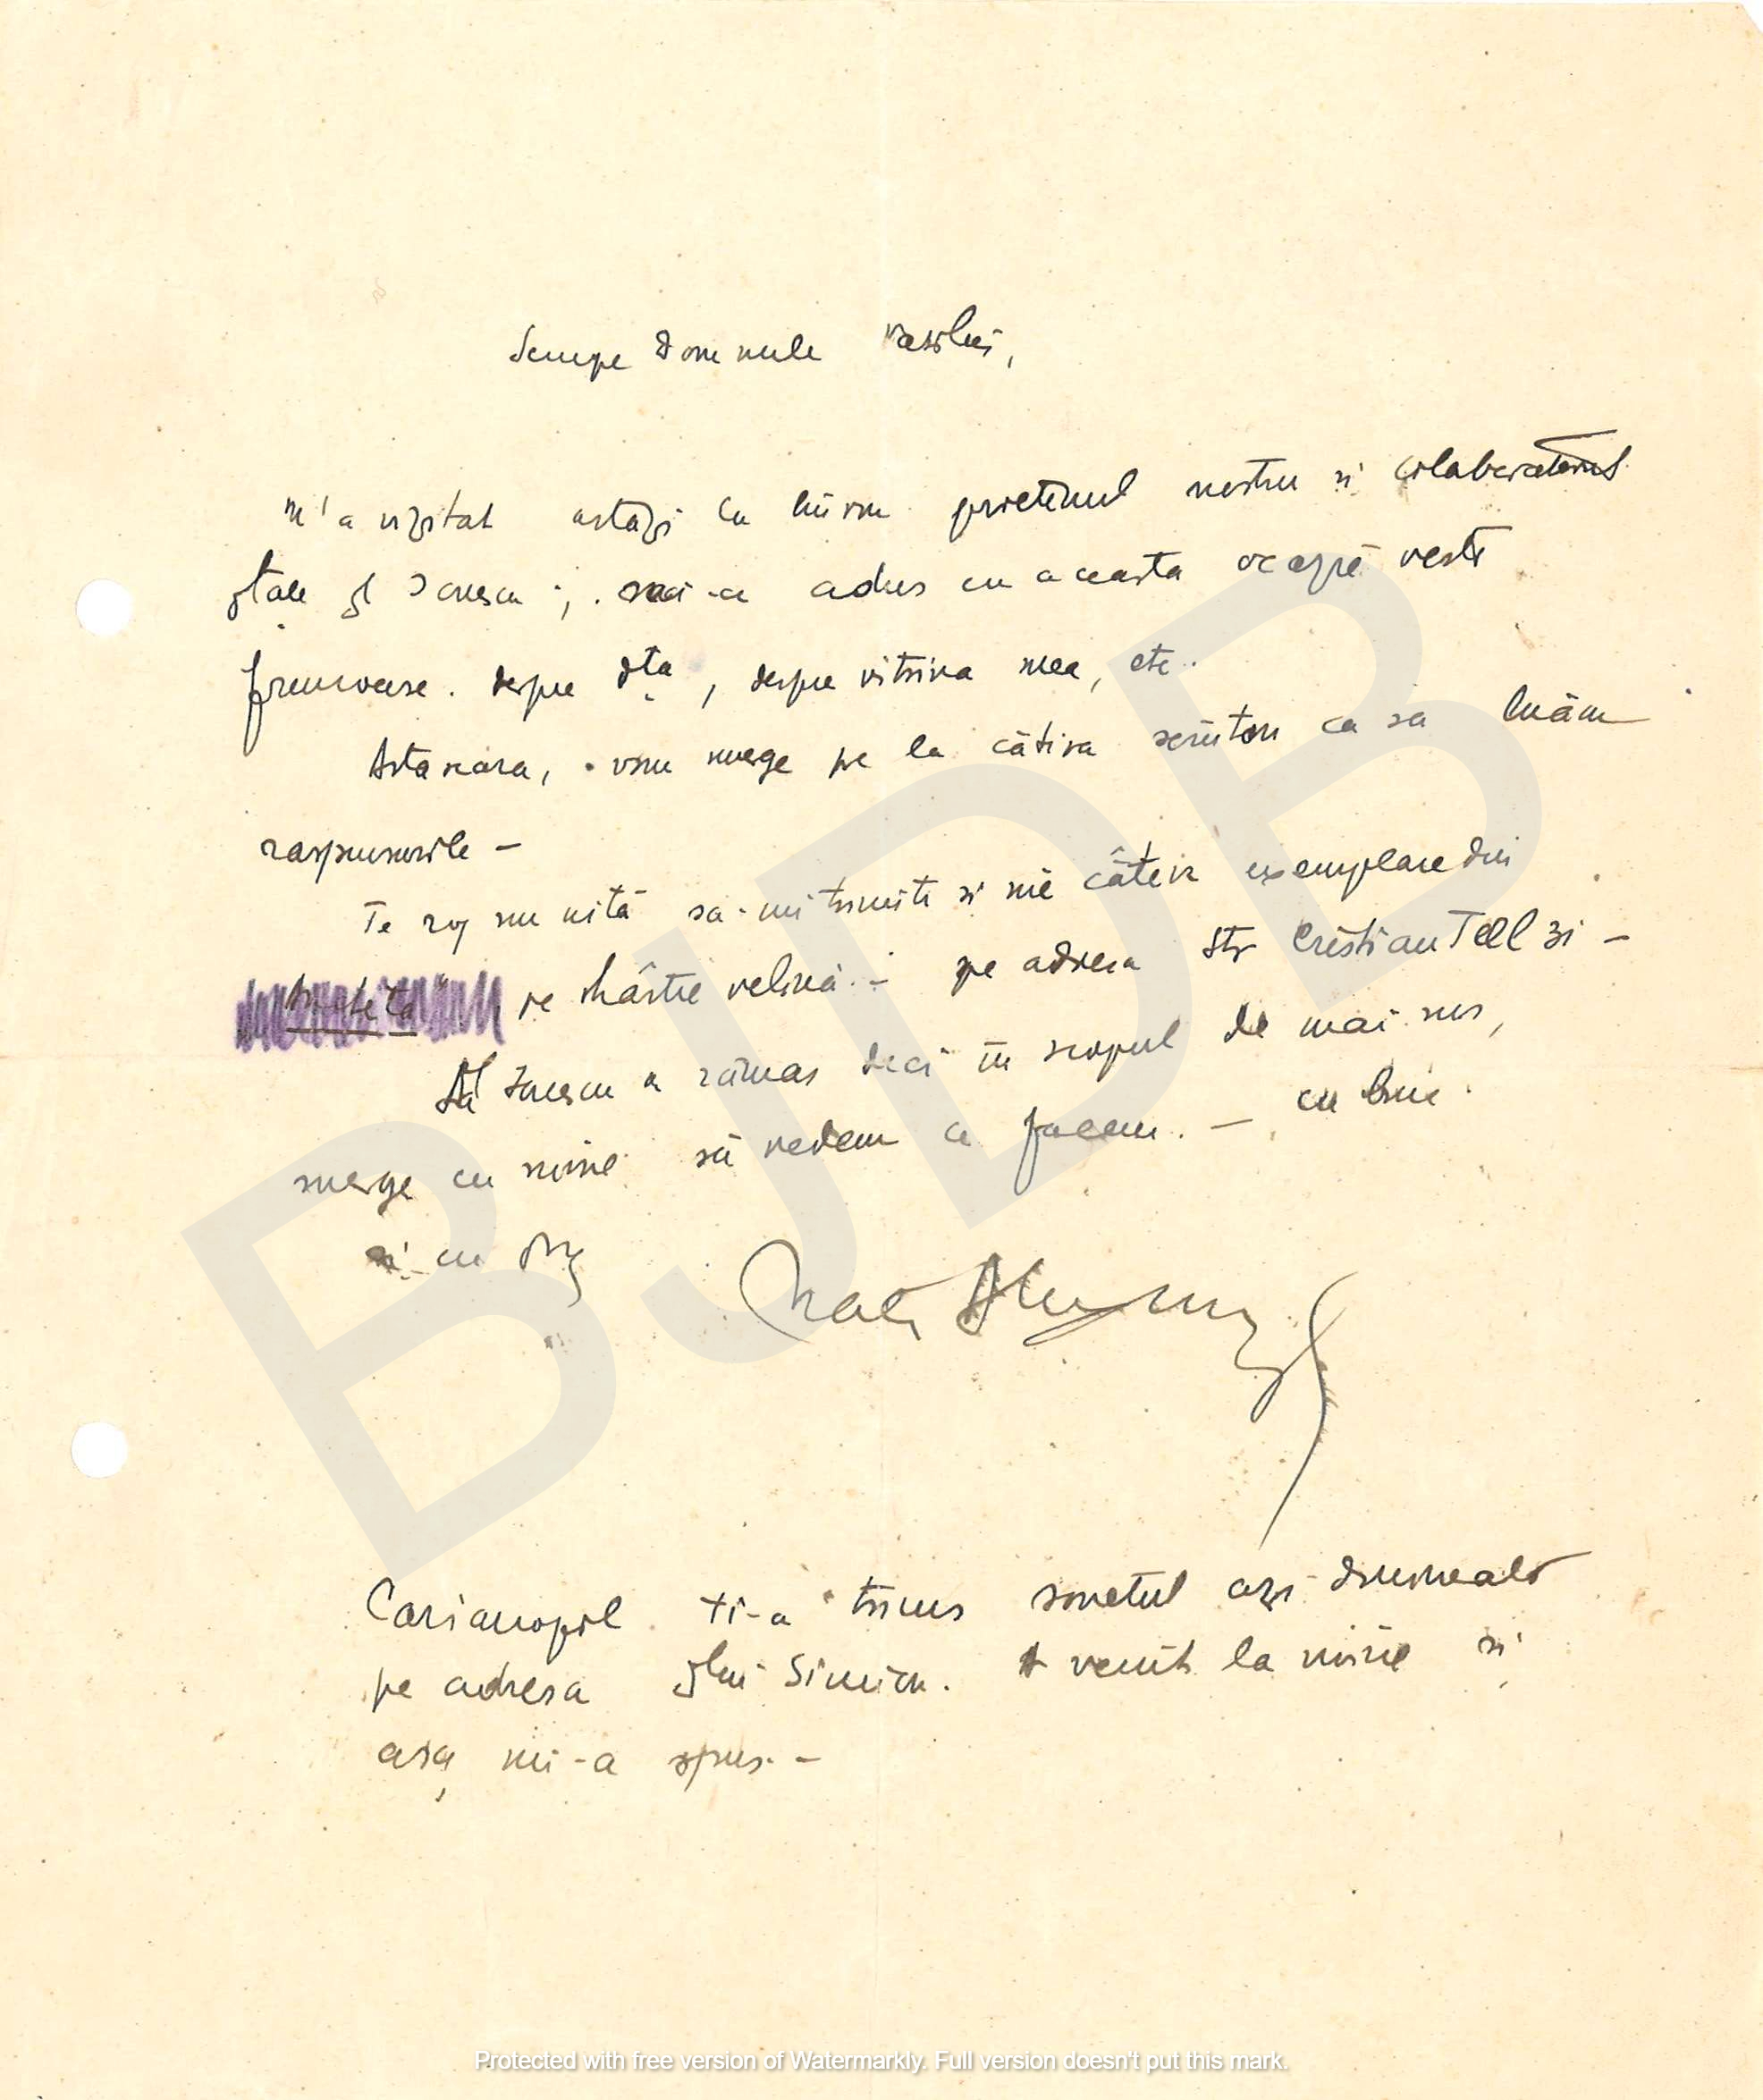 Scumpe Domnule Vasiliu,
m'a vizitat astăzi la birou prietenul nostru si colaboratorul
dtale dl Ionescu; mi-a adus cu aceasta ocazie vesti
frumoase. despre dta, despre vitrina mea, etc.
Asta seara, vom merge pe la câtiva scriitori ca sa luăm
raspunsurile –
Te rog nu uitá sa-mi trimiti si mie câteva exemplare din
pe hârtie velină. – pe adresa Str Cristian Tell 31 –
Dl Ionescu a rămas deci în scopul de mai sus,
merge cu mine să vedem ce facem. – cu bine
si cu drag
Carianopol ti-a trimis sonetul azi dimineată
pe adresa dlui Simion. A venit la mine si
așa mi-a spus. –
BJDB
Protected with free version of Watermarkly. Full version doesn't put this mark.